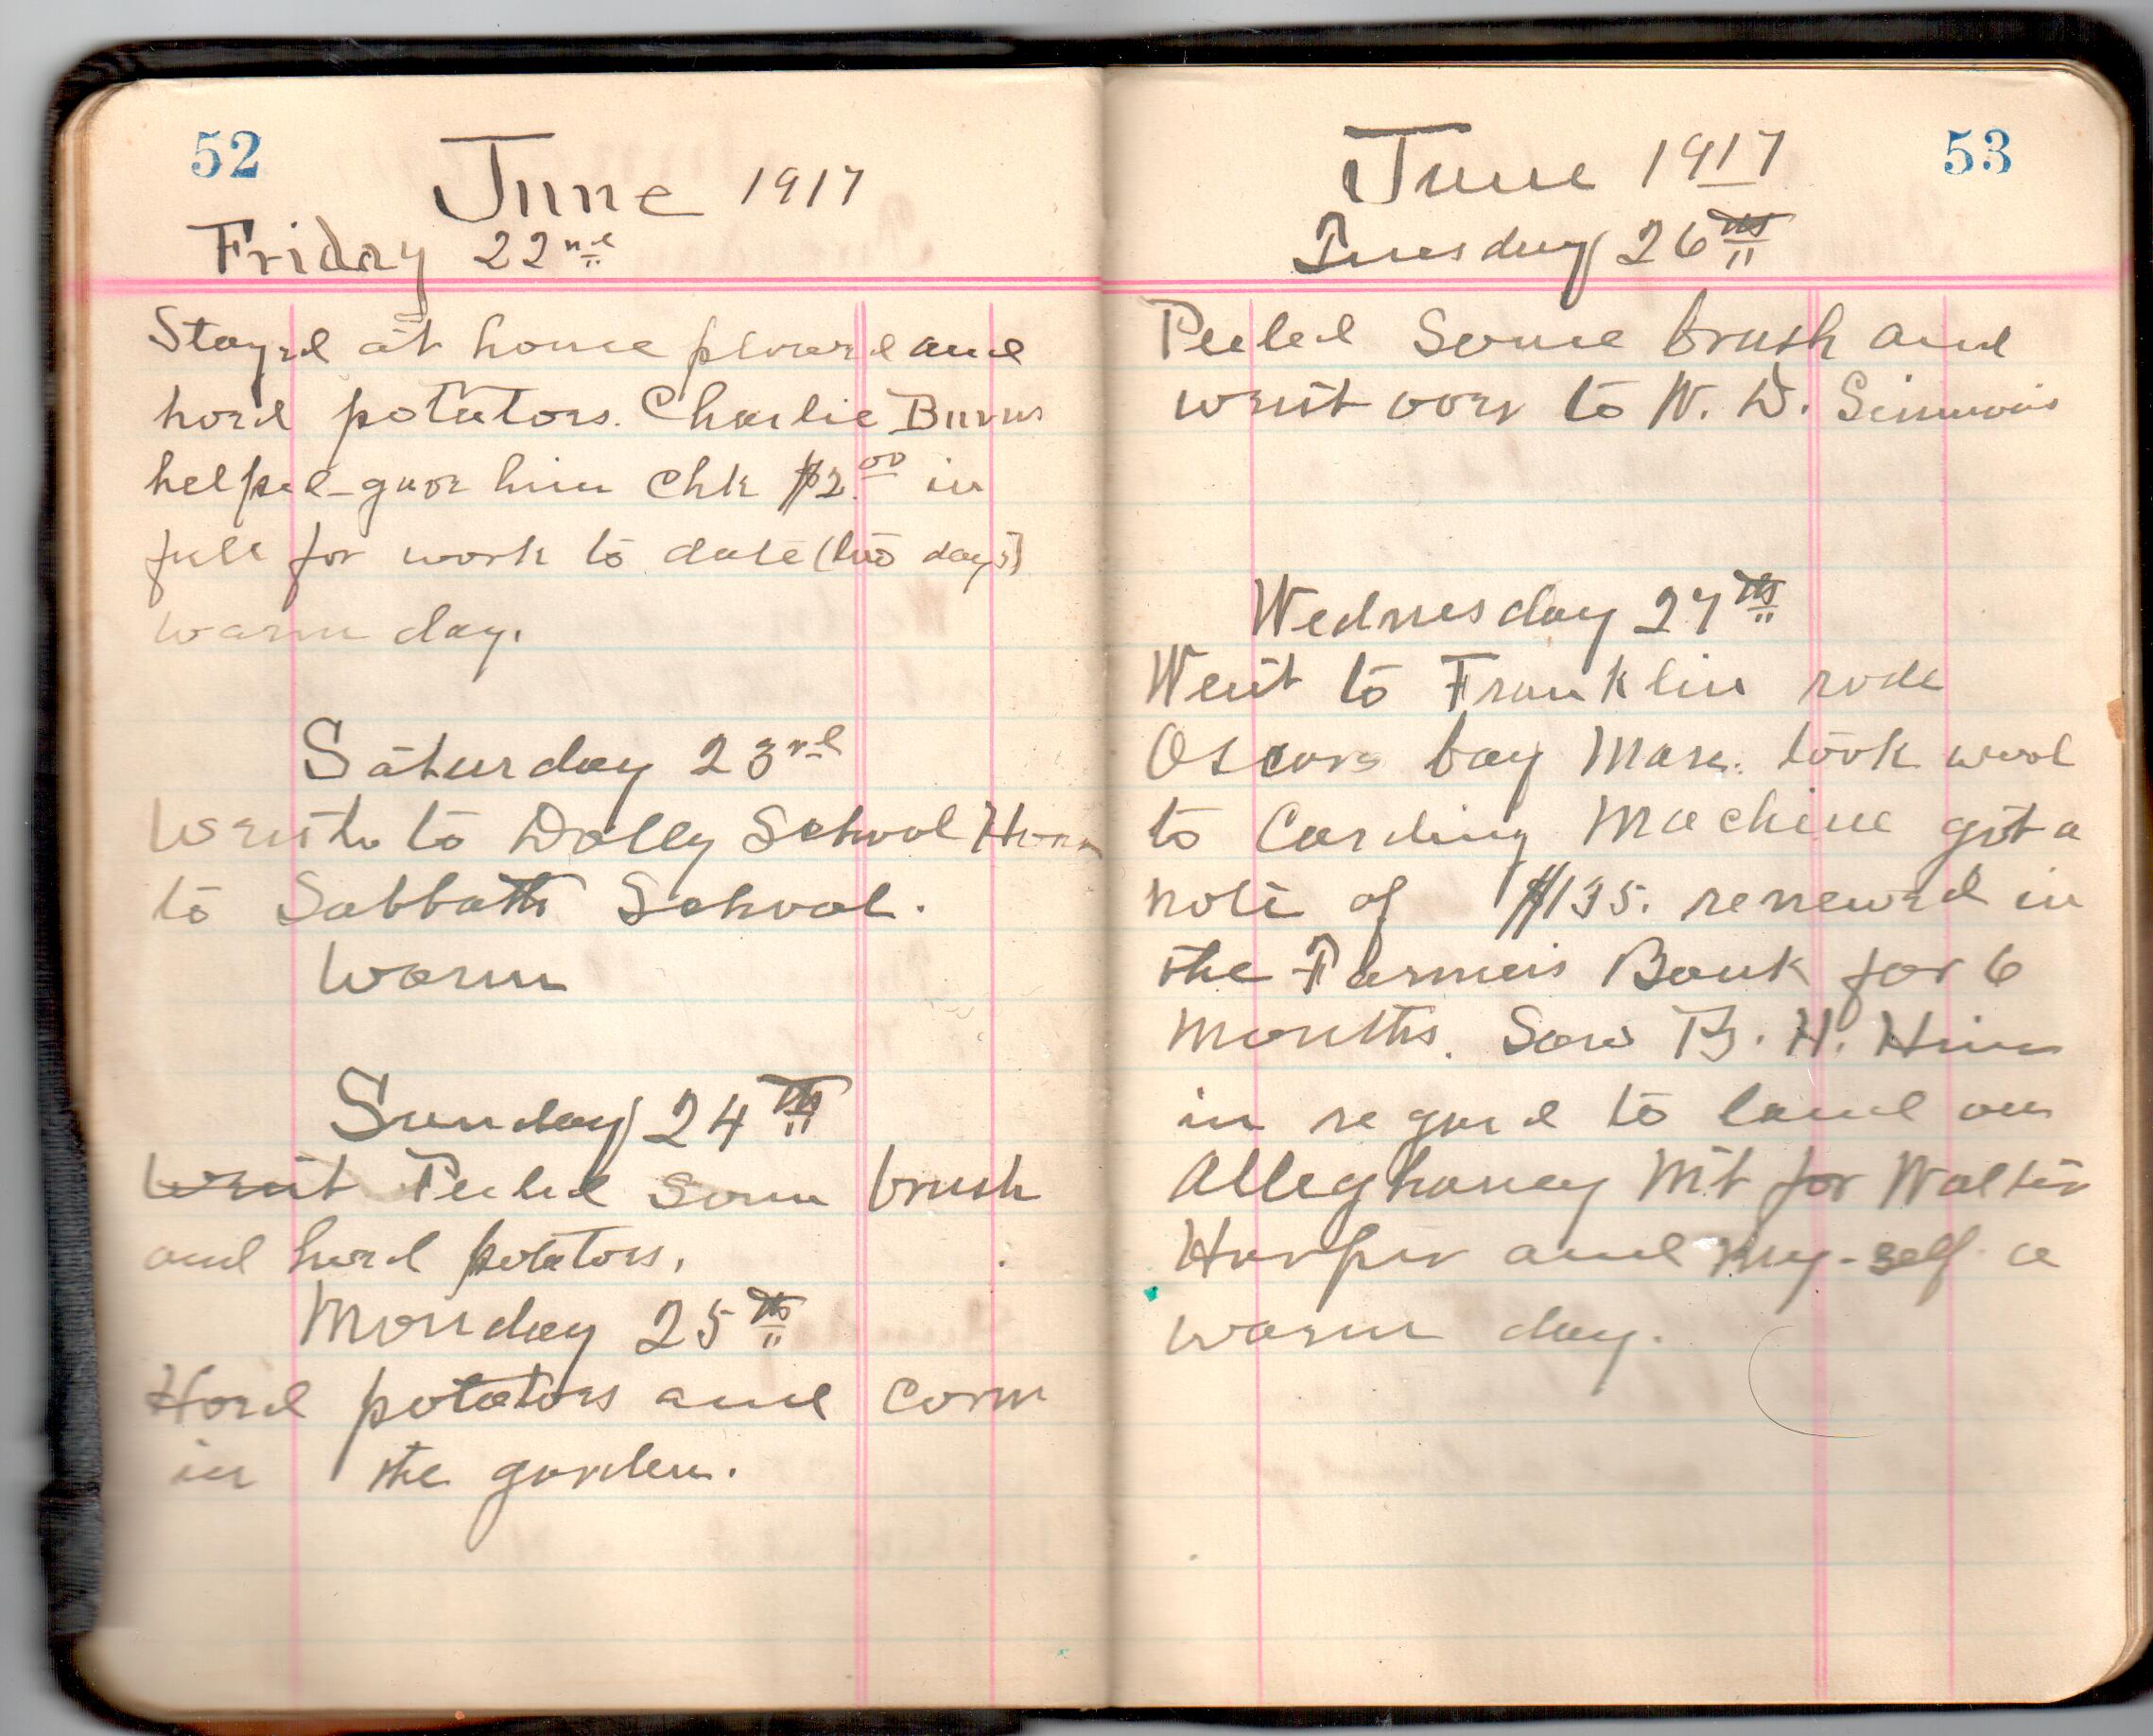 52
June 1917
Friday 22nd
Stayed at home plowed and
hoed potatoes. Charlie Burns
helped - gave him Chk $2.00 in
full for work to date (two days)
warm day.
Saturday 23rd
Went to Dolly School
to Sabbath School.
Warm
Sunday 24th
Went Peeled some brush
and hoed potatoes.
Monday 25th
Hoed potatoes and corn
in the garden.
53
June 1917
Tuesday 26th
Peeled some brush and
went over to W. D. Simmons
Wednesday 27th
Went to Franklin rode
Oscars bay Mare. took wool
to Carding Machine got a
note of $135. renewed in
the Farmers Bank for 6
months. Saw B. H. Hiner
in regard to land on
Alleghaney Mt for Walter
Harper and my-self a
warm day.